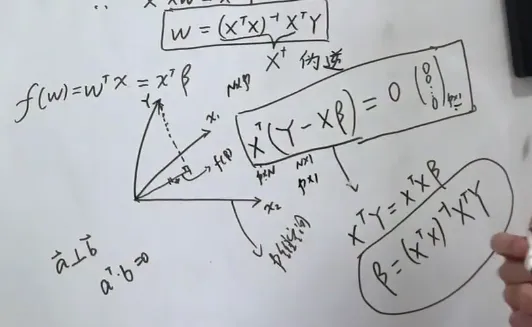 W = (XᵀX)⁻¹ XᵀY
X† 的逆
f(w) = wᵀx = xᵀβ
Y
x₁
N×p
Xᵀ(Y − Xβ) = 0
(0 0 ⋮ 0)p×1
p×N
N×1
p×1
f(β)
x₂
XᵀY = XᵀXβ
β = (XᵀX)⁻¹XᵀY
a⃗ ⊥ b⃗
aᵀ·b = 0